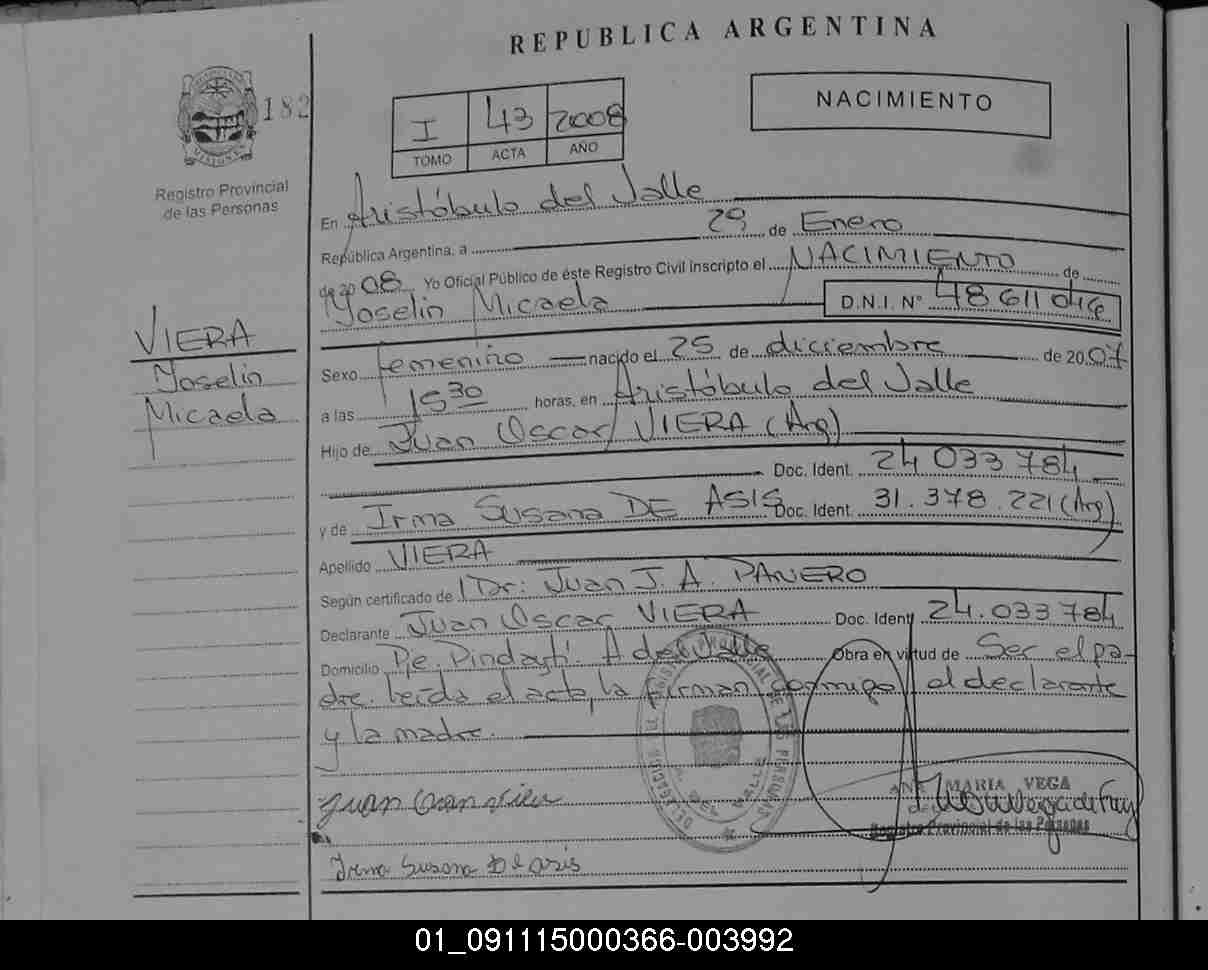 REPUBLICA ARGENTINA
182
MISIONES
Registro Provincial
de las Personas
I 43 2008
TOMO ACTA AÑO
NACIMIENTO
VIERA
Yoselin
Micaela
En Aristóbulo del Valle
República Argentina, a 29 de Enero
de 2008 Yo Oficial Público de éste Registro Civil Inscripto el NACIMIENTO de
Yoselin Micaela D.N.I. N° 48611046
Sexo femenino nacido el 25 de diciembre de 2007
a las 15 30 horas, en Aristóbulo del Valle
Hijo de Juan Oscar VIERA (Arg)
Doc. Ident. 24 033 784
y de Irma Susana DE ASIS Doc. Ident. 31.378.221 (Arg)
Apellido VIERA
Según certificado de Dr: Juan J. A. PANERO
Declarante Juan Oscar VIERA Doc. Ident 24.033 784
Domicilio Pje. Pindayti. A del Valle Obra en virtud de Ser el pa-
dre. Leída el acta, la firman conmigo el declarante
y la madre.
Juan Oscar Viera
MARIA VEGA
Registro Provincial de las Personas
Irma Susana De asis
01_091115000366-003992